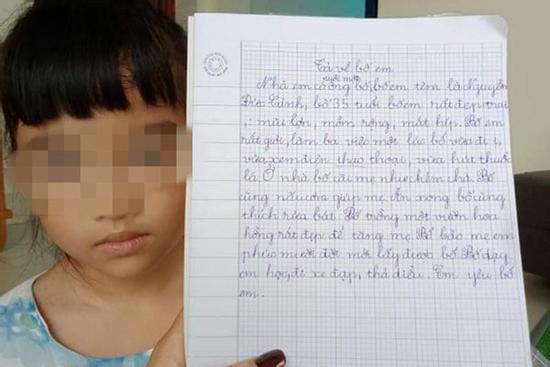 Tả về bố em
Nhà em có ông bố, bố em tên là Nguyễn
Đức Cảnh, bố 35 tuổi bố em rất đẹp trai
, mũi lớn, mồm rộng, mắt híp. Bố em
rất giỏi, làm ba việc một lúc bố vừa đi ị,
vừa xem điện thạo thoại, vừa hút thuốc
lá. Ở nhà bố cãi mẹ nhiều hơn bà. Bố
cũng nấu cơm giúp mẹ. Ăn xong bố cũng
thích rửa bát. Bố trồng một vườn hoa
hồng rất đẹp để tặng mẹ. Bố bảo mẹ em
phúc mười đời mới lấy được bố. Bố dạy
em học, đi xe đạp, thả diều. Em yêu bố
em.